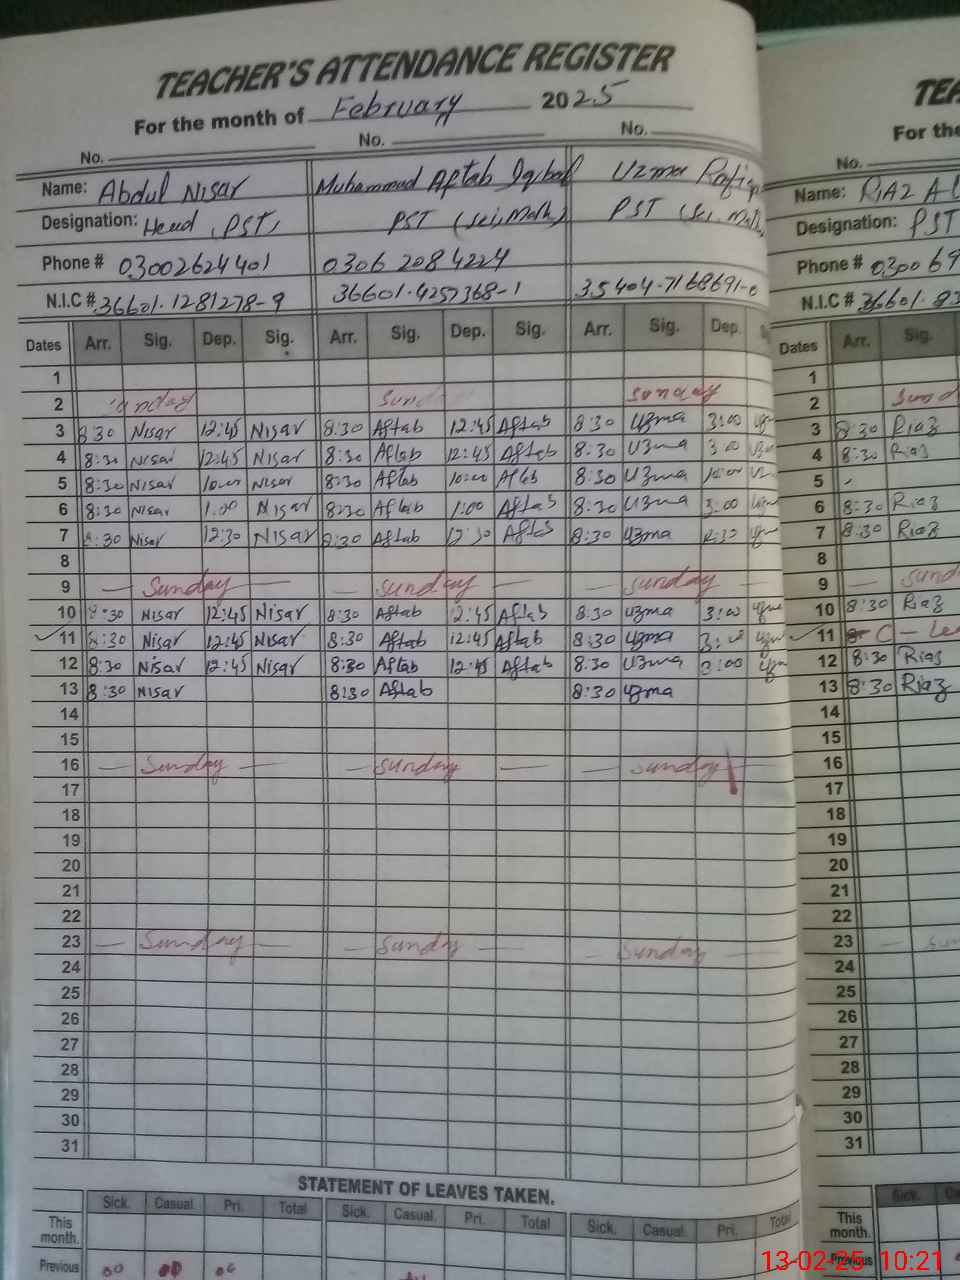 TEACHER'S ATTENDANCE REGISTER
For the month of February 2025
No. No. No.
Name: Abdul Nisar Muhammad Aftab Iqbal Uzma Rafiq
Designation: Head PST, PST (Sci, Math) PST (Sci, Math)
Phone # 03002624401 0306 2084224
N.I.C # 36601-1281278-9 36601-4257368-1 35404-7168691-0
Dates Arr. Sig. Dep. Sig. Arr. Sig. Dep. Sig. Arr. Sig. Dep.
1
2 Sunday sunday
3 8:30 Nisar 12:45 Nisar 8:30 Aftab 12:45 Aftab 8:30 Uzma 3:00
4 8:30 Nisar 12:45 Nisar 8:30 Aftab 12:45 Aftab 8:30 Uzma 3:00
5 8:30 Nisar 10:00 Nisar 8:30 Aftab 10:00 Aftab 8:30 Uzma 10:00
6 8:30 Nisar 1:00 Nisar 8:30 Aftab 1:00 Aftab 8:30 Uzma 3:00
7 8:30 Nisar 12:30 Nisar 8:30 Aftab 12:30 Aftab 8:30 Uzma 12:30
8
9 — Sunday — — sunday — — sunday —
10 8:30 Nisar 12:45 Nisar 8:30 Aftab 12:45 Aftab 8:30 Uzma 3:00
11 8:30 Nisar 12:45 Nisar 8:30 Aftab 12:45 Aftab 8:30 Uzma 3:00
12 8:30 Nisar 12:45 Nisar 8:30 Aftab 12:45 Aftab 8:30 Uzma 3:00
13 8:30 Nisar 8:30 Aftab 8:30 Uzma
14
15
16 — Sunday — — sunday — — sunday
17
18
19
20
21
22
23 — Sunday — — Sunday — — sunday —
24
25
26
27
28
29
30
31
STATEMENT OF LEAVES TAKEN.
Sick. Casual. Pri. Total Sick. Casual. Pri. Total Sick. Casual. Pri. Total
This month.
Previous 00 00
For the
No.
Name: RIAZ
Designation: PST
Phone # 0300 69
N.I.C # 36601-
Dates Arr. Sig.
1
2
3 8:30 Riaz
4 8:30 Riaz
5
6 8:30 Riaz
7 8:30 Riaz
8
9
10 8:30 Riaz
11 C-
12 8:30 Riaz
13 8:30 Riaz
14
15
16
17
18
19
20
21
22
23
24
25
26
27
28
29
30
31
Sick.
This month.
Previous
13-02-25 10:21